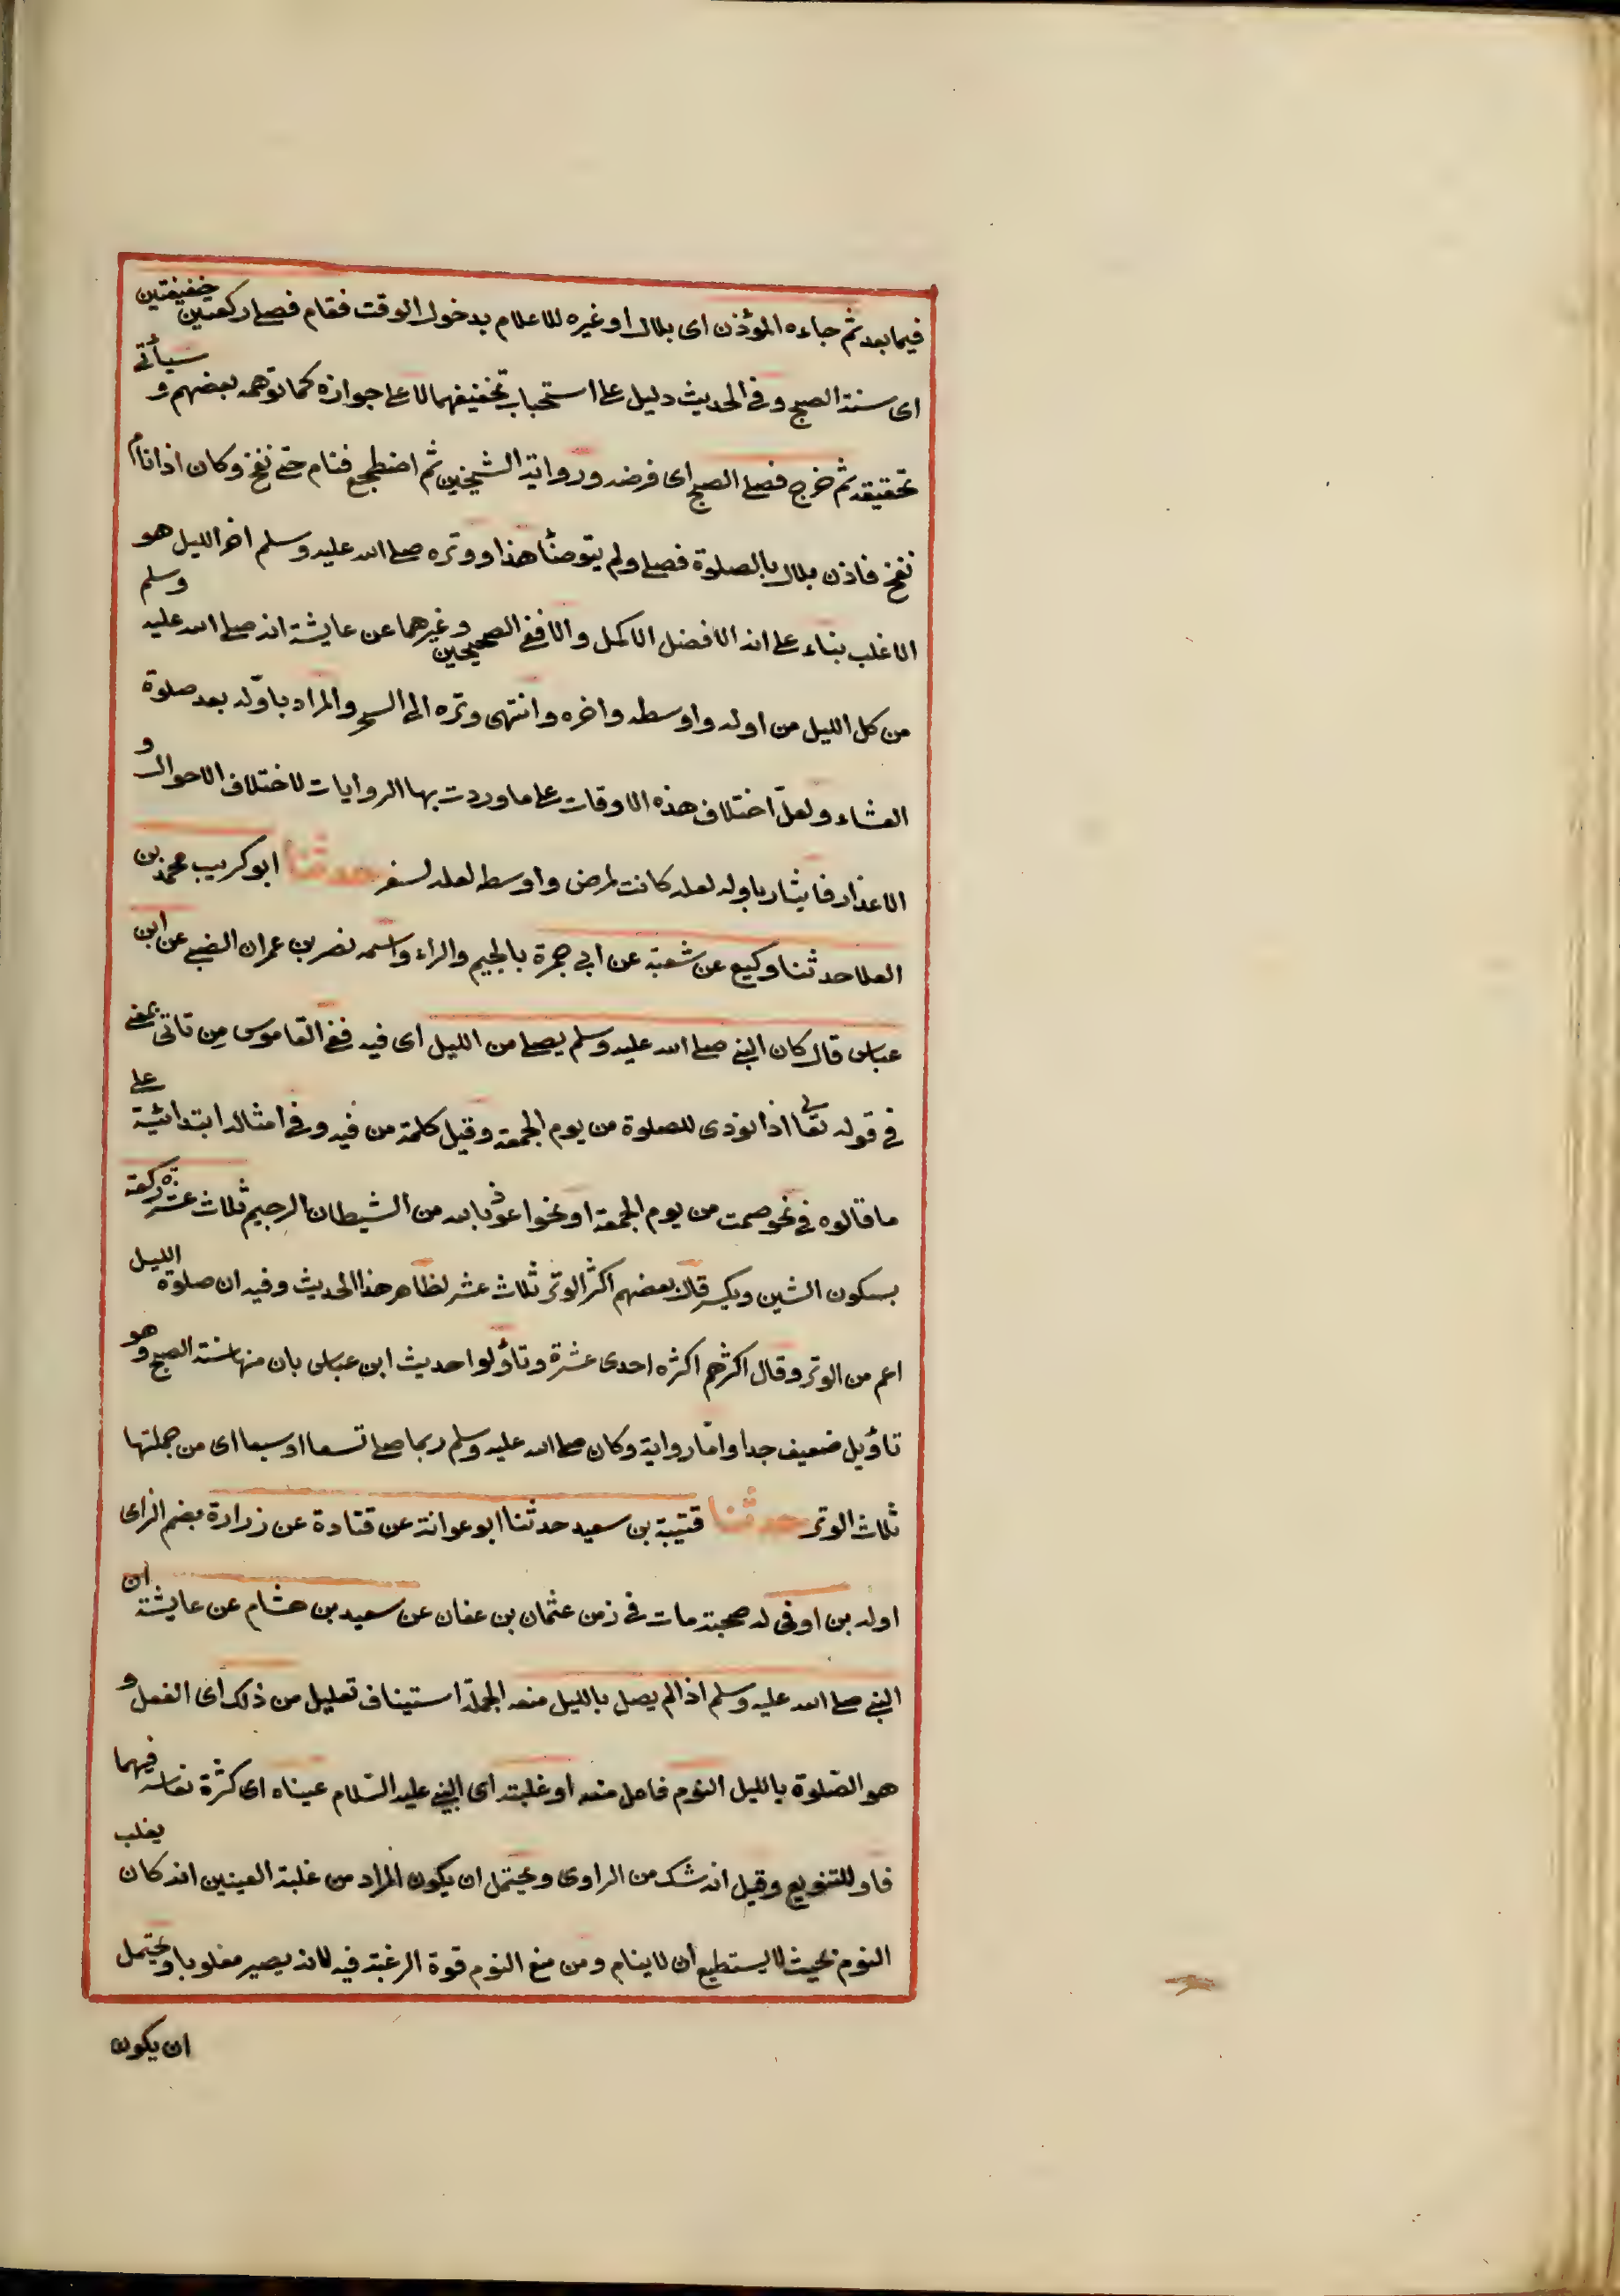 فيما بعد ثم جاءه المؤذن اى بلال او غيره للاعلام بدخول الوقت فقام فصلى ركعتين خفيفتين
اى سنة الصبح وفى الحديث دليل على استحباب تخفيفهما لا على جوازه كما توهمه بعضهم و سيأتى
تحقيقه ثم خرج فصلى الصبح اى فرضه ورواية الشيخين ثم اضطجع فنام حتى نفخ وكان اذا نام
نفخ فاذن بلال بالصلوة فصلى ولم يتوضأ هذا ووتره صلى الله عليه وسلم اخر الليل هو
الاغلب بناء على انه الافضل الاكمل والا ففى الصحيحين وغيرهما عن عايشة انه صلى الله عليه وسلم
من كل الليل من اوله واوسطه واخره وانتهى وتره الى السحر والمراد باوّله بعد صلوة
العشاء ولعلّ اختلاف هذه الاوقات على ما وردت بها الروايات لاختلاف الاحوال و
الاعذار فايثار باوله لعله كانت لمرض واوسطه لعله لسفر حدثنا ابو كريب محمد بن
العلا حدثنا وكيع عن شعبة عن ابى جمرة بالجيم والراء واسمه نصر بن عمران الضبى عن ابن
عباس قال كان النبى صلى الله عليه وسلم يصلى من الليل اى فيه ففى القاموس مِن تاتى بمعنى
فى قوله تعالى اذا نودى للصلوة من يوم الجمعة وقيل كلمة من فيه وفى امثاله ابتدائية على
ما قالوه فى نحو صمت من يوم الجمعة او نحو اعوذ بالله من الشيطان الرجيم ثلاث عشرة ركعة
بسكون الشين ويكسر قال بعضهم اكثر الوتر ثلاث عشر لظاهر هذا الحديث وفيه ان صلوة الليل
اعم من الوتر وقال اكثرهم اكثره احدى عشرة وتأولوا حديث ابن عباس بان منها سنة الصبح وهو
تأويل ضعيف جدا وامّا رواية وكان صلى الله عليه وسلم ربما صلى تسعا او سبعا اى من جملتها
ثلاث الوتر حدثنا قتيبة بن سعيد حدثنا ابو عوانة عن قتادة عن زرارة بضم الزاى
اوله بن اوفى له صحبة مات فى زمن عثمان بن عفان عن سعيد بن هشام عن عايشة ان
النبى صلى الله عليه وسلم اذا لم يصل بالليل منعه الجملة استيناف تعليل من ذلك اى الفعل و
هو الصّلوة بالليل النوم فاعل منعه او غلبته اى النبى عليه السّلام عيناه اى كثرة نعاسه فيهما
فاو للتنويع وقيل انه شك من الراوى ويحتمل ان يكون المراد من غلبة العينين انه كان يغلب
النوم بحيث لا يستطيع ان لا ينام ومن منع النوم قوة الرغبة فيه لانه يصير مغلوبا ويحتمل
ان يكون